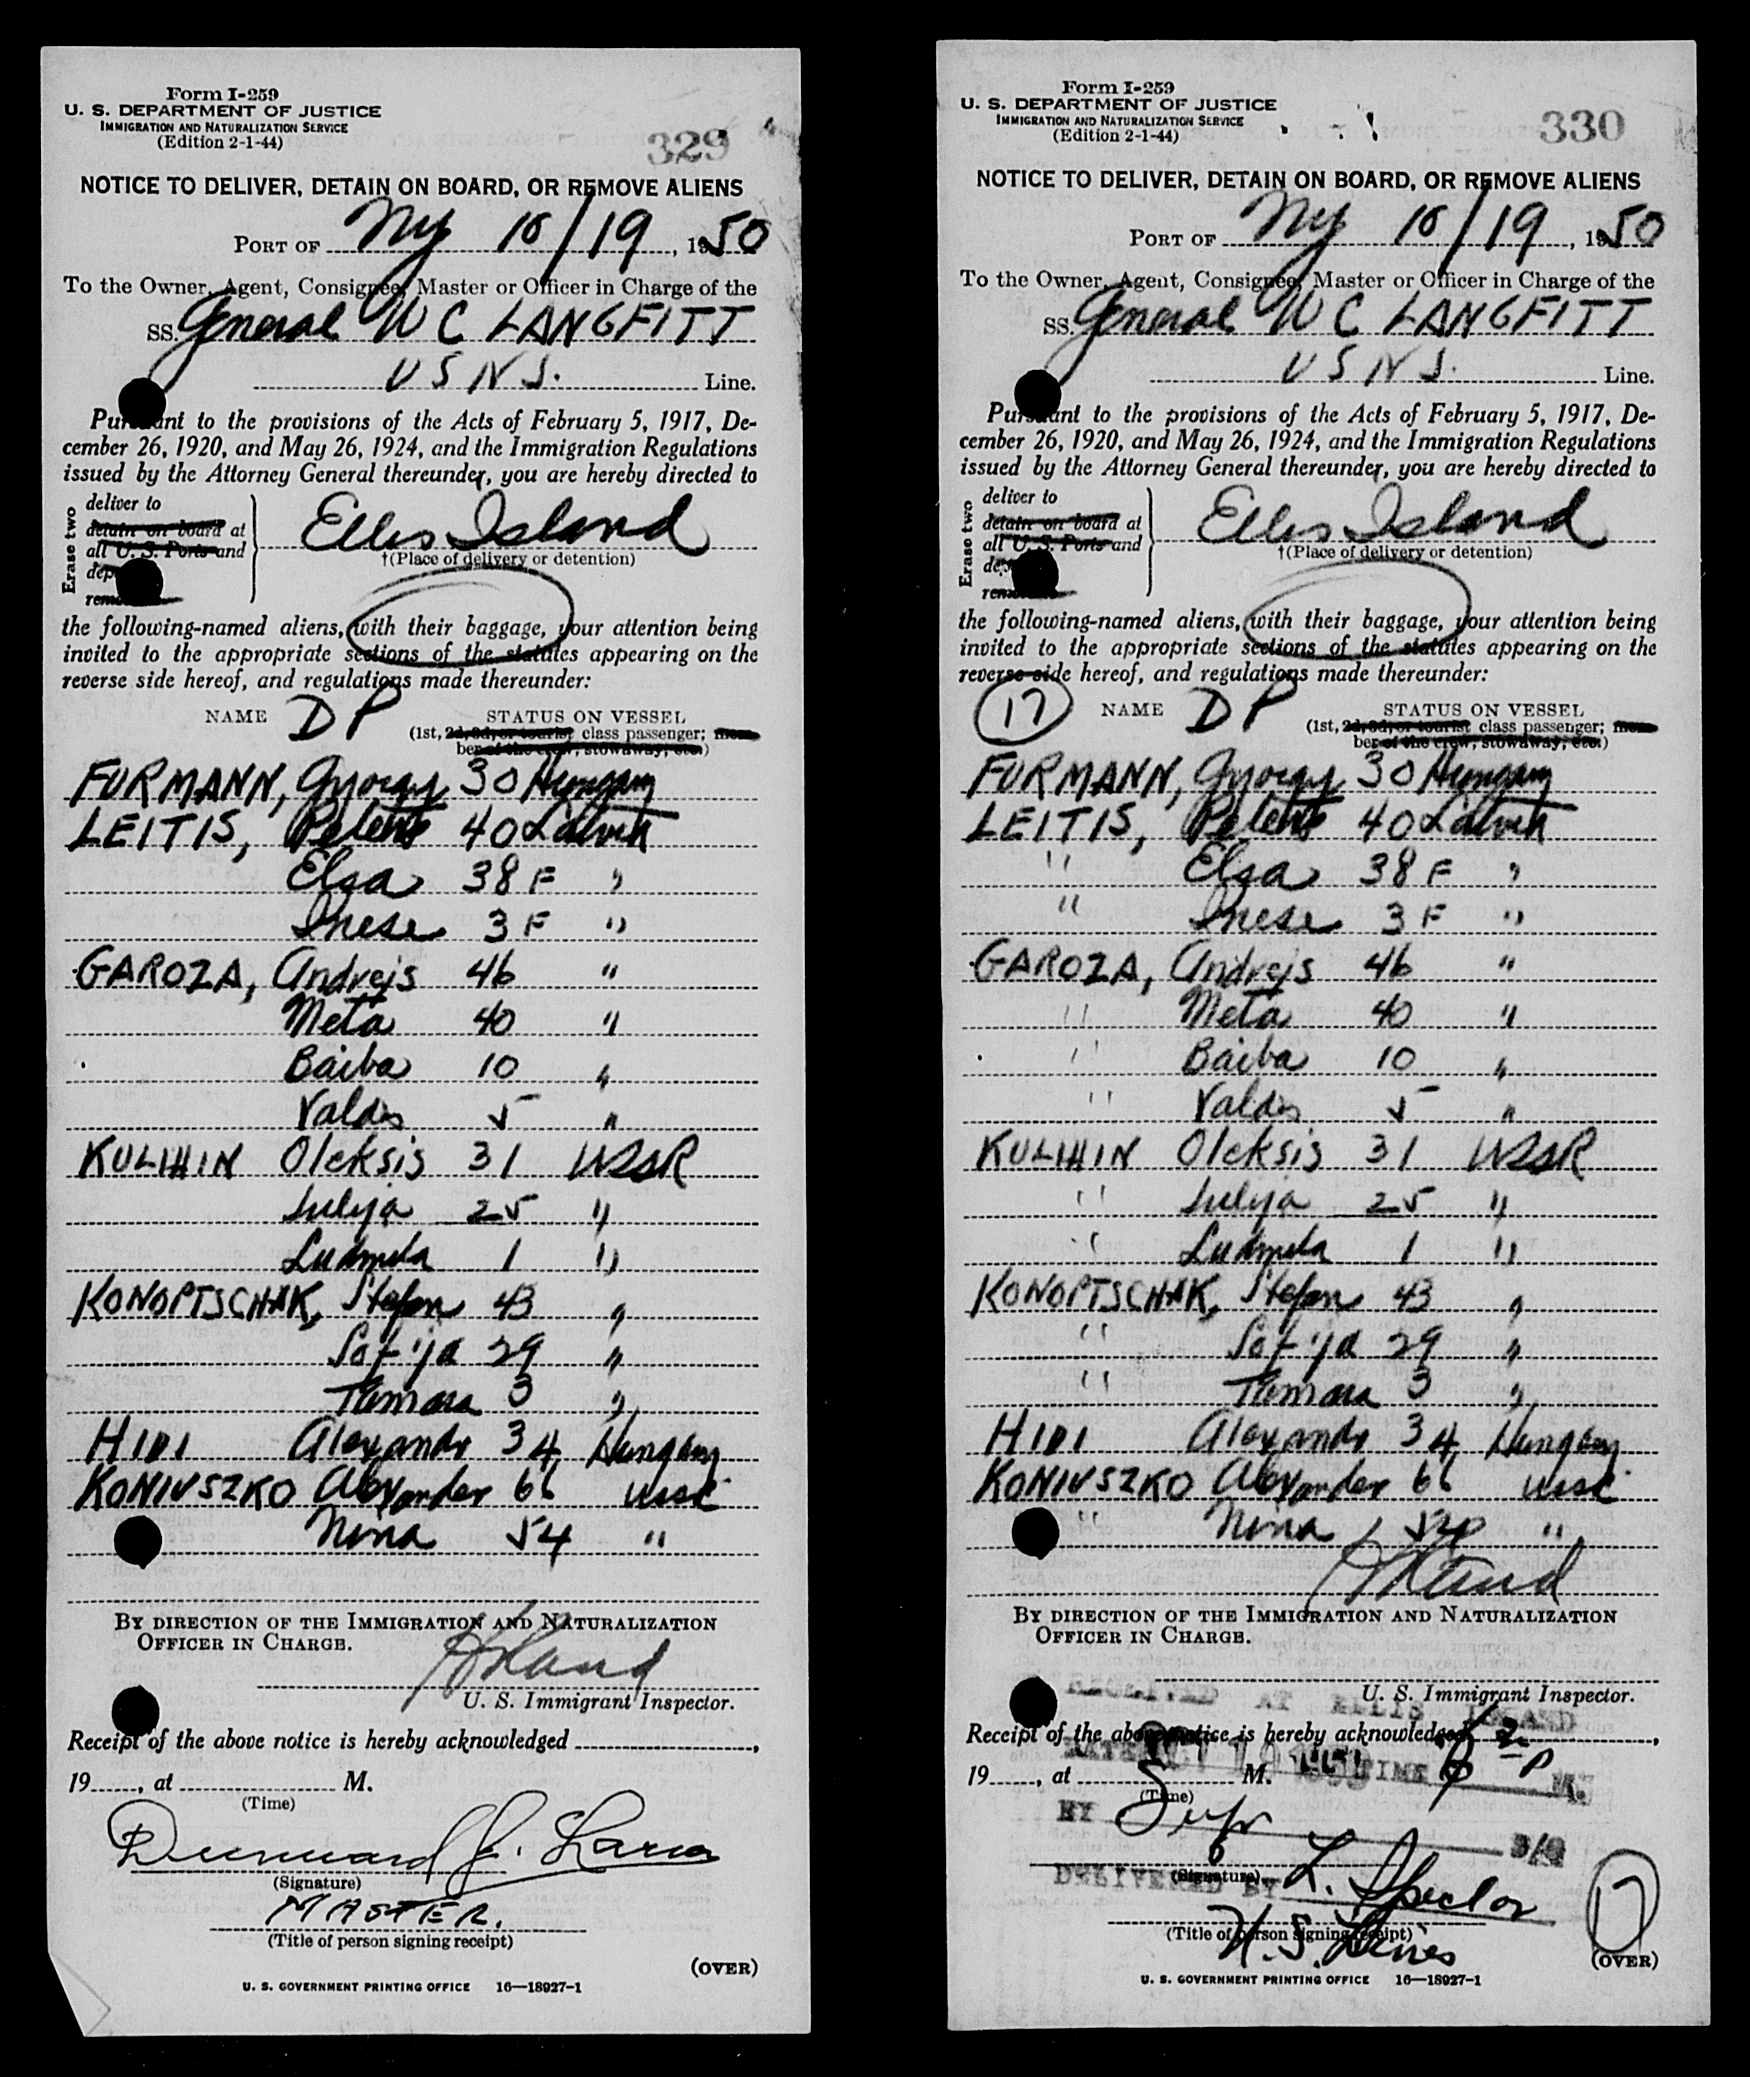 Form I-259
U. S. DEPARTMENT OF JUSTICE
IMMIGRATION AND NATURALIZATION SERVICE
(Edition 2-1-44)
329
NOTICE TO DELIVER, DETAIN ON BOARD, OR REMOVE ALIENS
PORT OF NY 10/19, 1950
To the Owner, Agent, Consignee, Master or Officer in Charge of the
SS. General W C LANGFITT
U S N S. Line.
Pursuant to the provisions of the Acts of February 5, 1917, De-
cember 26, 1920, and May 26, 1924, and the Immigration Regulations
issued by the Attorney General thereunder, you are hereby directed to
Erase two
deliver to
detain on board at
all U. S. Ports and
dep
remo
Ellis Island
†(Place of delivery or detention)
the following-named aliens, with their baggage, your attention being
invited to the appropriate sections of the statutes appearing on the
reverse side hereof, and regulations made thereunder:
NAME DP STATUS ON VESSEL
(1st, 2d, 3d, or tourist class passenger; mem-
ber of the crew, stowaway, etc.)
FURMANN, Gyorgy 30 Hungary
LEITIS, 40 Latvia
Elsa 38 F "
Inese 3 F "
GAROZA, Andrejs 46 "
Meta 40 "
Baiba 10 "
Valdis 5 "
KULIHIN Oleksis 31 USSR
Julija 25 "
Ludmila 1 "
KONOPTSCHAK, Stefan 43 "
Sofija 29 "
Tamara 3 "
HIDI Alexandr 34 Hungary
KONIUSZKO Alexander 66 USSR
Nina 54 "
BY DIRECTION OF THE IMMIGRATION AND NATURALIZATION
OFFICER IN CHARGE.
U. S. Immigrant Inspector.
Receipt of the above notice is hereby acknowledged ,
19 , at M.
(Time)
(Signature)
MASTER.
(Title of person signing receipt)
(OVER)
U. S. GOVERNMENT PRINTING OFFICE 16—18927-1
Form I-259
U. S. DEPARTMENT OF JUSTICE
IMMIGRATION AND NATURALIZATION SERVICE
(Edition 2-1-44)
330
NOTICE TO DELIVER, DETAIN ON BOARD, OR REMOVE ALIENS
PORT OF NY 10/19, 1950
To the Owner, Agent, Consignee, Master or Officer in Charge of the
SS. General W C LANGFITT
U S N S. Line.
Pursuant to the provisions of the Acts of February 5, 1917, De-
cember 26, 1920, and May 26, 1924, and the Immigration Regulations
issued by the Attorney General thereunder, you are hereby directed to
Erase two
deliver to
detain on board at
all U. S. Ports and
de
rem
Ellis Island
†(Place of delivery or detention)
the following-named aliens, with their baggage, your attention being
invited to the appropriate sections of the statutes appearing on the
reverse side hereof, and regulations made thereunder:
17 NAME DP STATUS ON VESSEL
(1st, 2d, 3d, or tourist class passenger; mem-
ber of the crew, stowaway, etc.)
FURMANN, Gyorgy 30 Hungary
LEITIS, 40 Latvia
" Elsa 38 F "
" Inese 3 F "
GAROZA, Andrejs 46 "
" Meta 40 "
" Baiba 10 "
" Valdis 5 "
KULIHIN Oleksis 31 USSR
" Julija 25 "
" Ludmila 1 "
KONOPTSCHAK, Stefan 43 "
" Sofija 29 "
" Tamara 3 "
HIDI Alexandr 34 Hungary
KONIUSZKO Alexander 66 USSR
" Nina 54 "
BY DIRECTION OF THE IMMIGRATION AND NATURALIZATION
OFFICER IN CHARGE.
U. S. Immigrant Inspector.
RECEIVED AT ELLIS ISLAND
Receipt of the above notice is hereby acknowledged ,
19 , at M.
TIME P M.
(Time)
BY
(Signature)
DELIVERED BY L. Spector
(Title of person signing receipt)
17
(OVER)
U. S. GOVERNMENT PRINTING OFFICE 16—18927-1